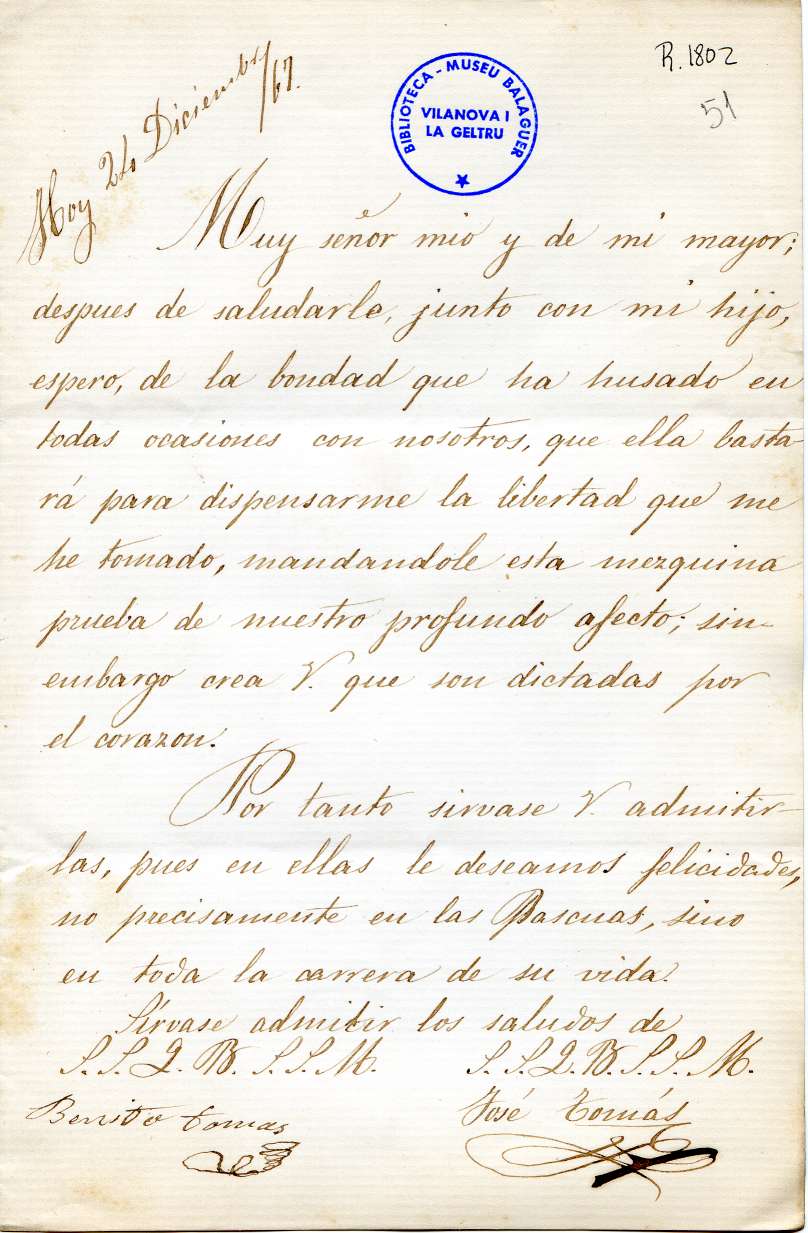 R. 1802
51
BIBLIOTECA - MUSEU BALAGUER
VILANOVA I
LA GELTRU
Hoy 24 Diciembre/67.
Muy señor mio y de mi mayor;
despues de saludarle, junto con mi hijo,
espero, de la bondad que ha husado en
todas ocasiones con nosotros, que ella basta-
rá para dispensarme la libertad que me
he tomado, mandandole esta mezquina
prueba de nuestro profundo afecto; sin-
embargo crea V. que son dictadas por
el corazon.
Por tanto sirvase V. admitir-
las, pues en ellas le deseamos felicidades,
no precisamente en las Pascuas, sino
en toda la carrera de su vida.
Sírvase admitir los saludos de
S. S. Q. B. S. S. M. S. S. Q. B. S. S. M.
Benito tomas José Tomás